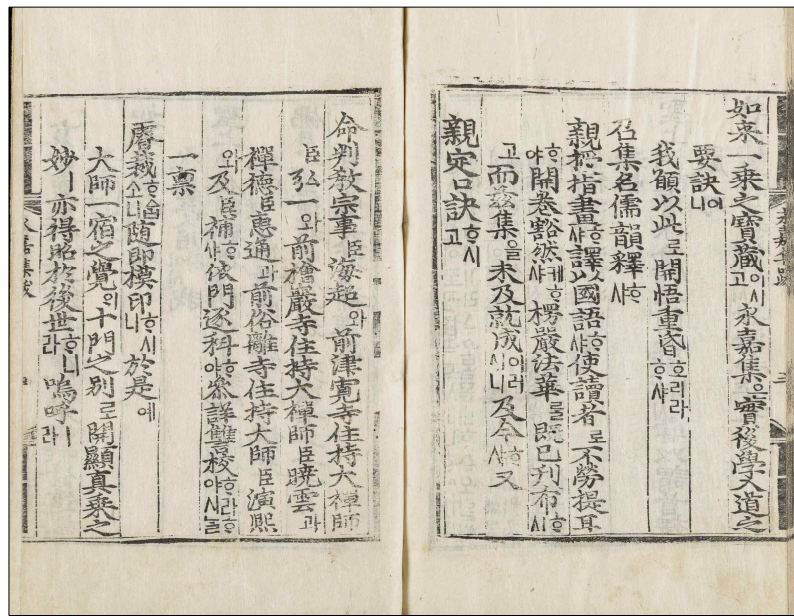 如来一乘之寶藏이시고永嘉集은實後學入道之
要訣이니
我願以此로開悟重昏호리라ᄒᆞ샤
召集名儒韻釋ᄒᆞ샤
親授指畫ᄒᆞ샤譯以國語ᄒᆞ샤使讀者로不勞提耳
ᄒᆞ야開卷豁然케ᄒᆞ샤楞嚴法華를既已刊布ᄒᆞ시
고而茲集을未及就成이러시니及今ᄒᆞ샤又
親定口訣ᄒᆞ시고
命判教宗事臣海超와前津寬寺住持大禪師
臣弘一와前檜巖寺住持大禪師臣曉雲과
禪德臣惠通과前俗離寺住持大師臣演熙
와及臣補ᄒᆞ샤依門逐科ᄒᆞ야參詳讎校ᄒᆞ라ᄒᆞ야시ᄂᆞᆯ
一禀
睿裁ᄒᆞᅀᆞᆸ소니随即模印ᄒᆞ시니於是예
大師一宿之覺의十門之別로開顯真乘之
妙ㅣ亦得昭於後世ᄒᆞ니라嗚呼ㅣ라